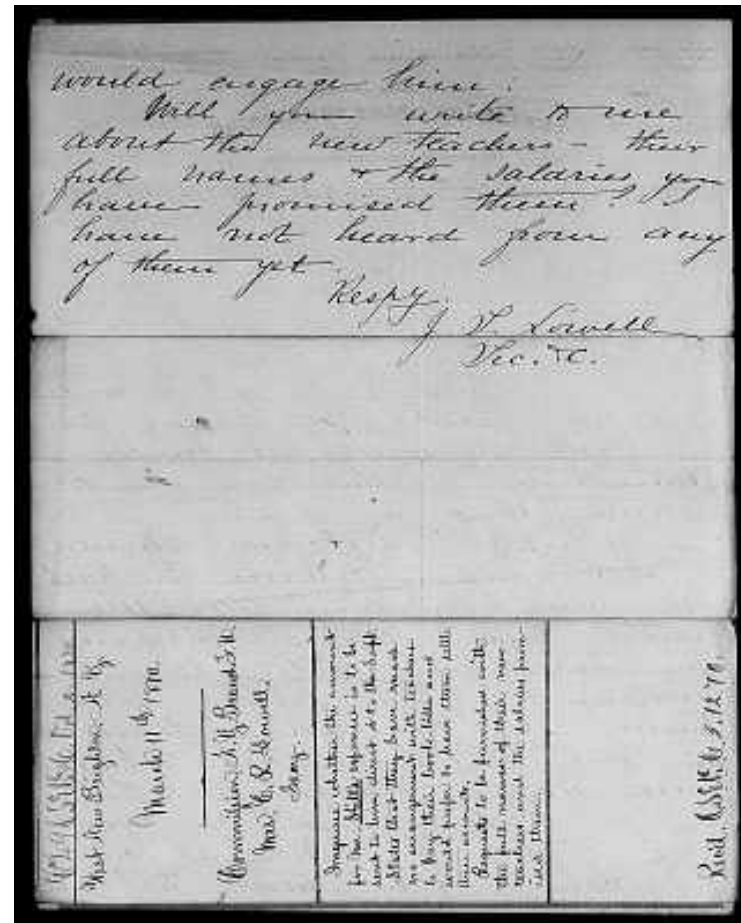 would engage him.
Will you write to me
about the new teachers – their
full names & the salaries you
have promised them? I
have not heard from any
of them yet.
Respy.
J. S. Lowell
Sec. &c.
West New Brighton, N. Y.
March 11th 1870.
Commission N. Y. Branch F. U.
Mrs. C. R. Lowell,
Secy.
Inquires whether the amount
for Mr. expenses is to be
sent to him direct or to the Supt.
States that they have made
no arrangement with teachers
to buy their books this and
would prefer to have them sell
their own.
Requests to be furnished with
the full names of their new
teachers and the salaries prom-
ised them.
Recd. 3.12.70.